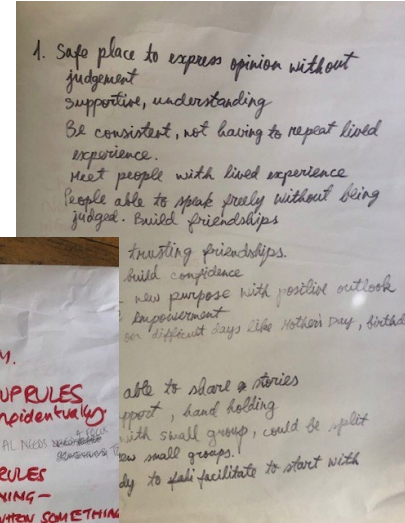 1. Safe place to express opinion without
judgement
Supportive, understanding
Be consistent, not having to repeat lived
experience.
Meet people with lived experience
People able to speak freely without being
judged. Build friendships
trusting friendships.
build confidence
new purpose with positive outlook
empowerment
on difficult days like Mother's Day, birthd
able to share stories
pport, hand holding
ith small group, could be split
small groups.
dy to facilitate to start with
M.
UP RULES
AL NEEDS
A FOCUS
RULES
NING -
WHEN SOMETHING